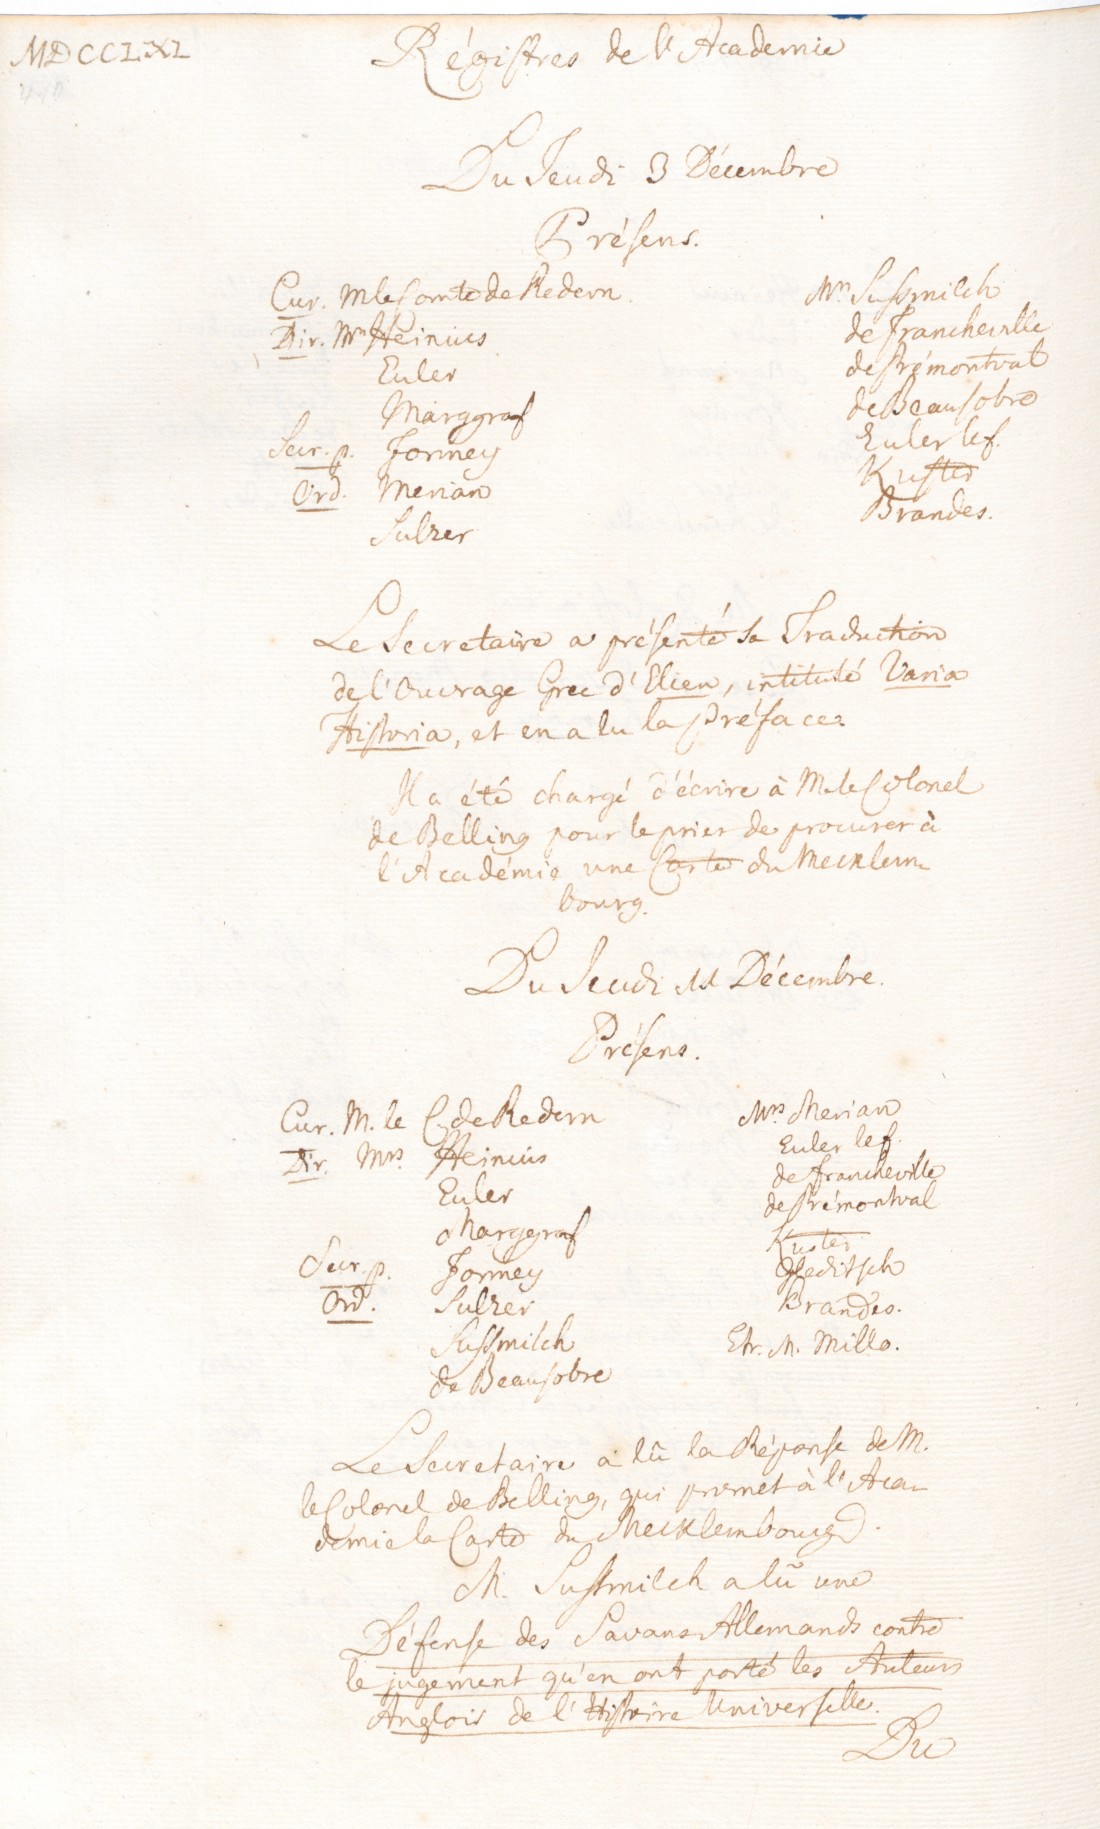 MDCCLXI.
Régistres de l'Academie
Du Jeudi 3 Décembre
Présens.
Cur. M. le Comte de Redern.
Dir. Mrs Heinius
Euler
Marggraf
Secr. p. Formey
Ord. Merian
Sulzer
Mrs Sussmilch
de Francheville
de Prémontval
de Beausobre
Euler le f.
Kuster
Brandes.
Le Secretaire a présenté sa Traduction
de l'Ouvrage Grec d'Elien, intitulé Varia
Historia, et en a lu la préface.
Il a été chargé d'écrire à M. le Colonel
de Belling pour le prier de procurer à
l'Académie une Carte du Mecklem-
bourg.
Du Jeudi 11 Décembre.
Présens.
Cur. M. le C. de Redern
Dir. Mrs Heinius
Euler
Marggraf
Secr. p. Formey
Ord. Sulzer
Sussmilch
de Beausobre
Mrs Merian
Euler le f.
de Francheville
de Prémontval
Kuster
Gleditsch
Brandes.
Etr. M. Millo.
Le Secretaire a lû la Réponse de M.
le Colonel de Belling, qui promet à l'Aca-
demie la Carte du Mecklembourg.
M. Sussmilch a lû une
Défense des Savans Allemands contre
le jugement qu'en ont porté les Auteurs
Anglois de l'Histoire Universelle.
Du